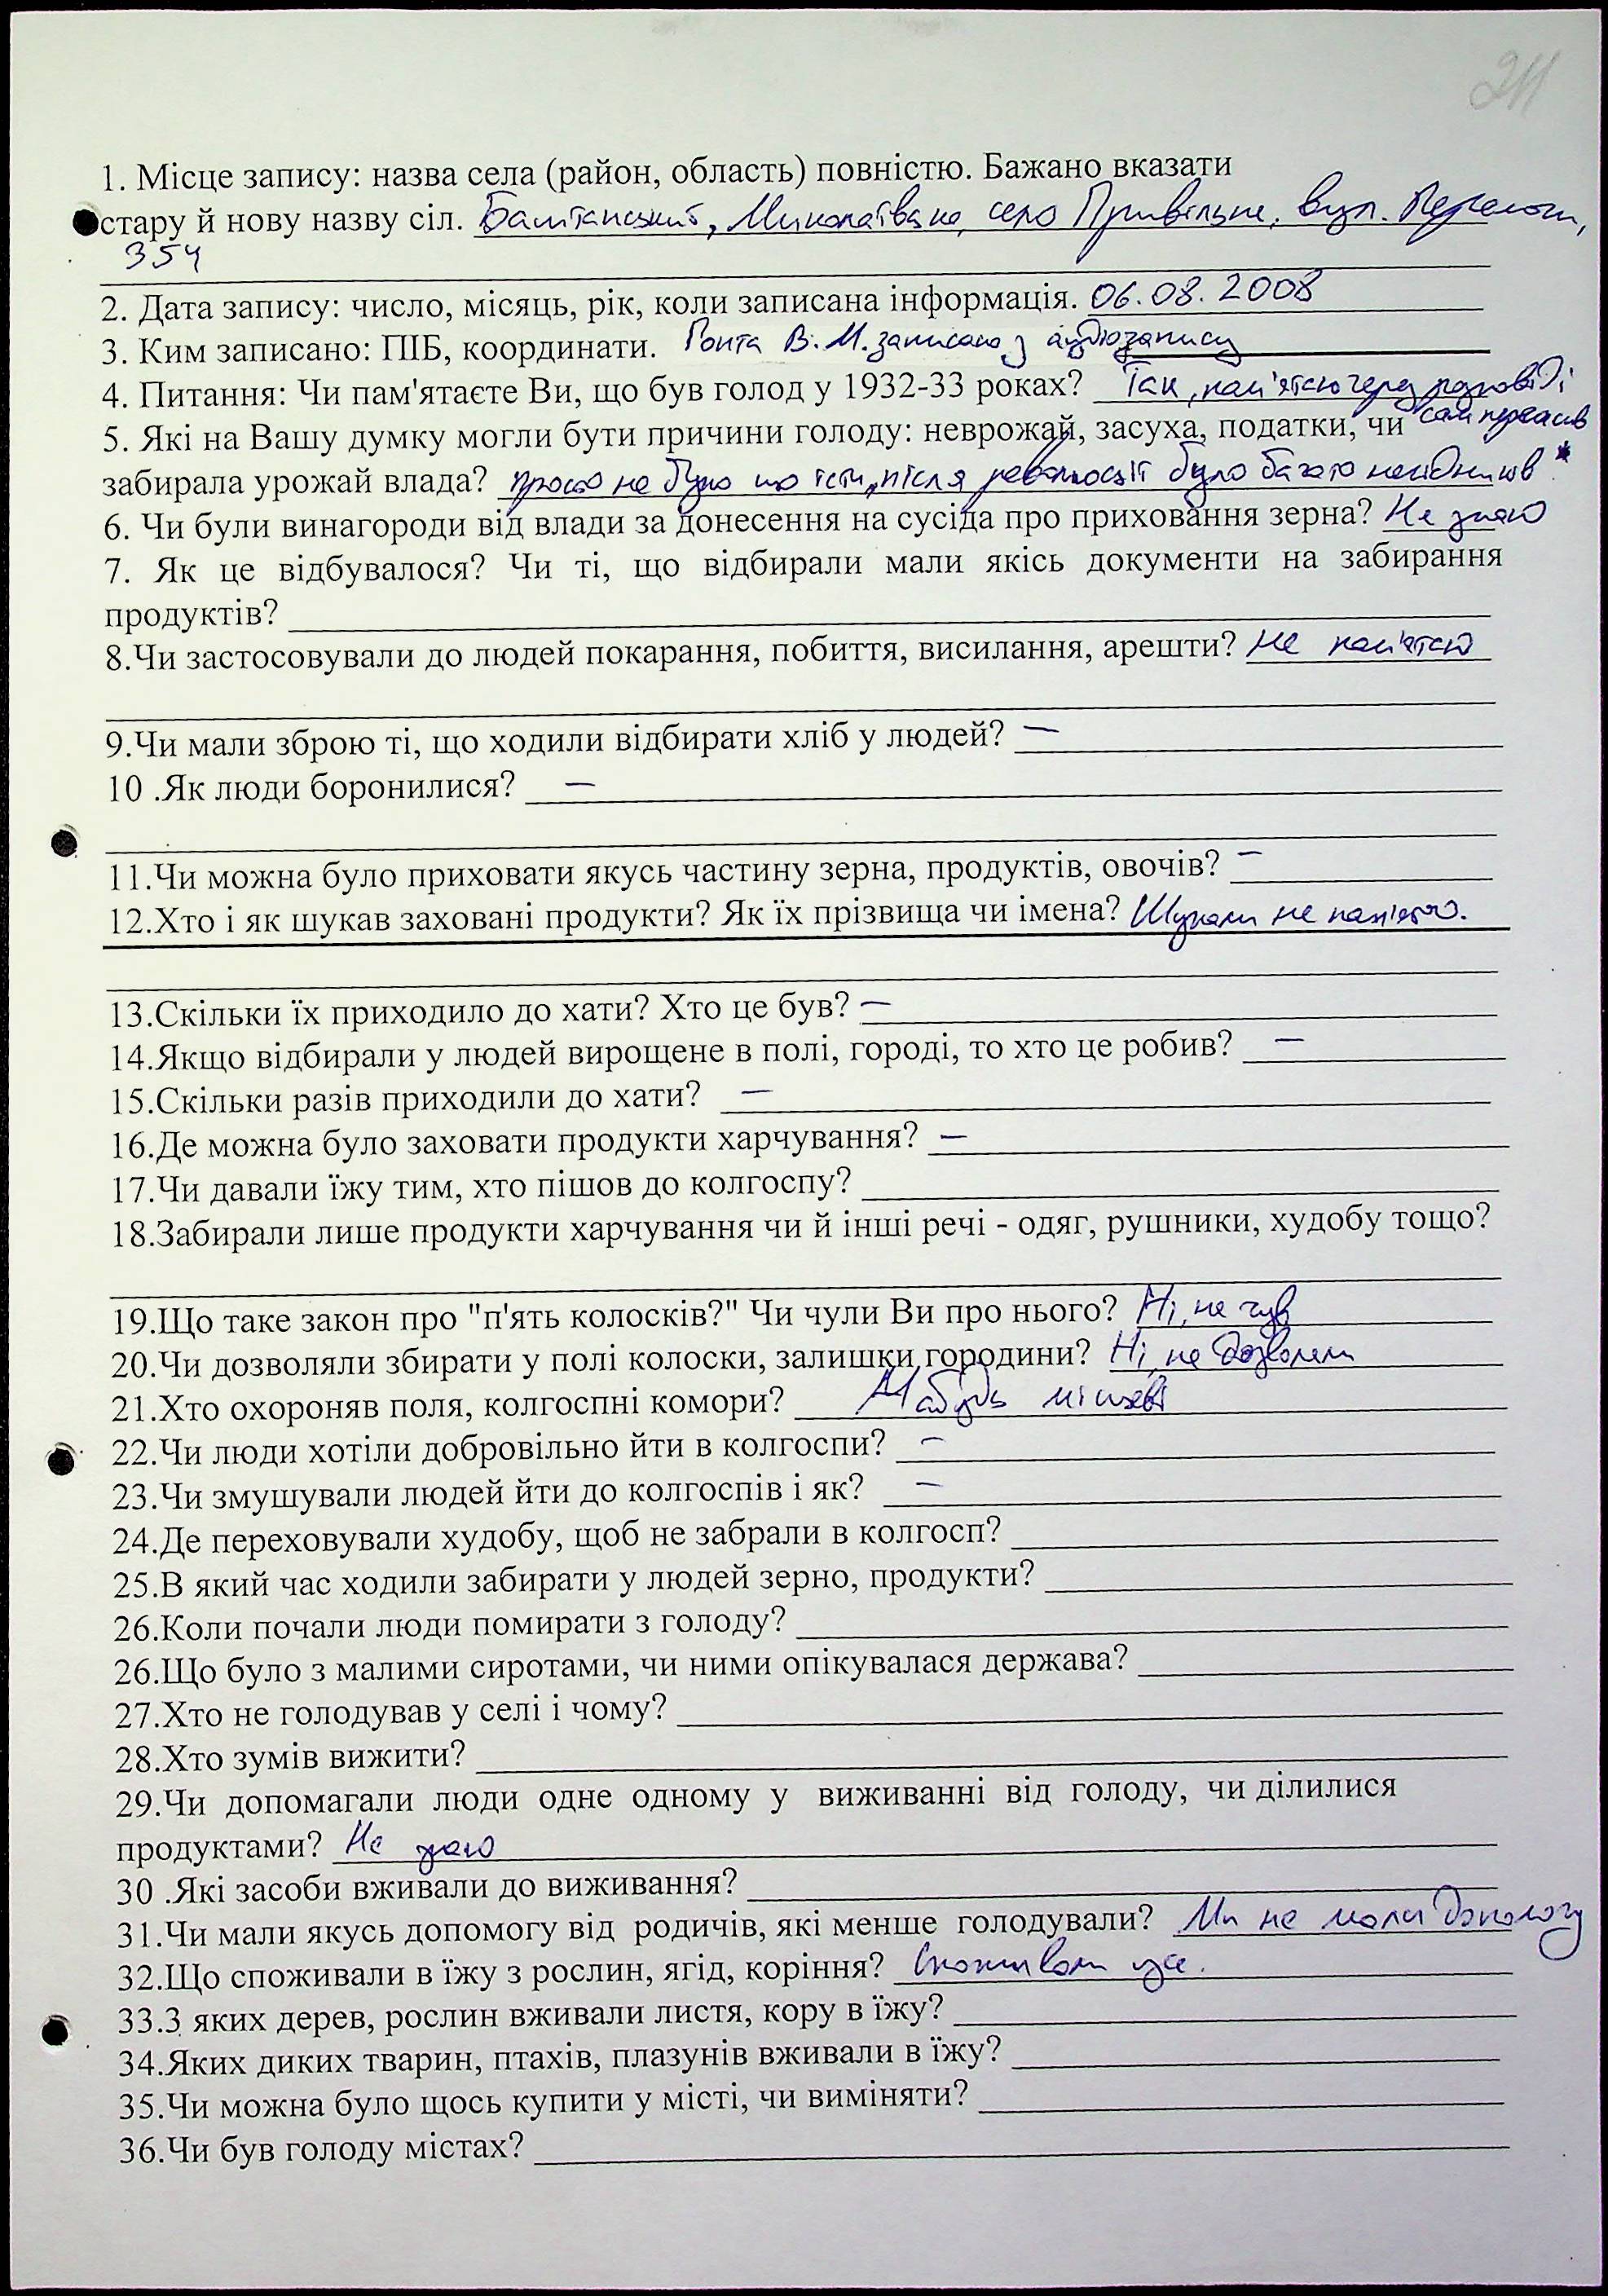 211
1. Місце запису: назва села (район, область) повністю. Бажано вказати
стару й нову назву сіл. Баштанський, Миколаївська, село Привільне, вул.
354
2. Дата запису: число, місяць, рік, коли записана інформація. 06.08.2008
3. Ким записано: ПІБ, координати. Гонта В.М. записано з аудіозапису
4. Питання: Чи пам'ятаєте Ви, що був голод у 1932-33 роках? Так, пам'ятаю через розповіді
5. Які на Вашу думку могли бути причини голоду: неврожай, засуха, податки, чи сам
забирала урожай влада? просто не було що їсти, після революції було багато *
6. Чи були винагороди від влади за донесення на сусіда про приховання зерна? Не знаю
7. Як це відбувалося? Чи ті, що відбирали мали якісь документи на забирання
продуктів?
8.Чи застосовували до людей покарання, побиття, висилання, арешти? Не пам'ятаю
9.Чи мали зброю ті, що ходили відбирати хліб у людей? —
10 .Як люди боронилися? —
11.Чи можна було приховати якусь частину зерна, продуктів, овочів? —
12.Хто і як шукав заховані продукти? Як їх прізвища чи імена? Шукали не пам'ятаю.
13.Скільки їх приходило до хати? Хто це був? —
14.Якщо відбирали у людей вирощене в полі, городі, то хто це робив? —
15.Скільки разів приходили до хати? —
16.Де можна було заховати продукти харчування? —
17.Чи давали їжу тим, хто пішов до колгоспу?
18.Забирали лише продукти харчування чи й інші речі - одяг, рушники, худобу тощо?
19.Що таке закон про "п'ять колосків?" Чи чули Ви про нього? Ні, не чув
20.Чи дозволяли збирати у полі колоски, залишки городини? Ні, не дозволяли
21.Хто охороняв поля, колгоспні комори? Мабудь місцеві
22.Чи люди хотіли добровільно йти в колгоспи? —
23.Чи змушували людей йти до колгоспів і як? —
24.Де переховували худобу, щоб не забрали в колгосп?
25.В який час ходили забирати у людей зерно, продукти?
26.Коли почали люди помирати з голоду?
26.Що було з малими сиротами, чи ними опікувалася держава?
27.Хто не голодував у селі і чому?
28.Хто зумів вижити?
29.Чи допомагали люди одне одному у виживанні від голоду, чи ділилися
продуктами? Не знаю
30 .Які засоби вживали до виживання?
31.Чи мали якусь допомогу від родичів, які менше голодували? Ми не мали допомогу
32.Що споживали в їжу з рослин, ягід, коріння? Споживали усе.
33.З яких дерев, рослин вживали листя, кору в їжу?
34.Яких диких тварин, птахів, плазунів вживали в їжу?
35.Чи можна було щось купити у місті, чи виміняти?
36.Чи був голоду містах?